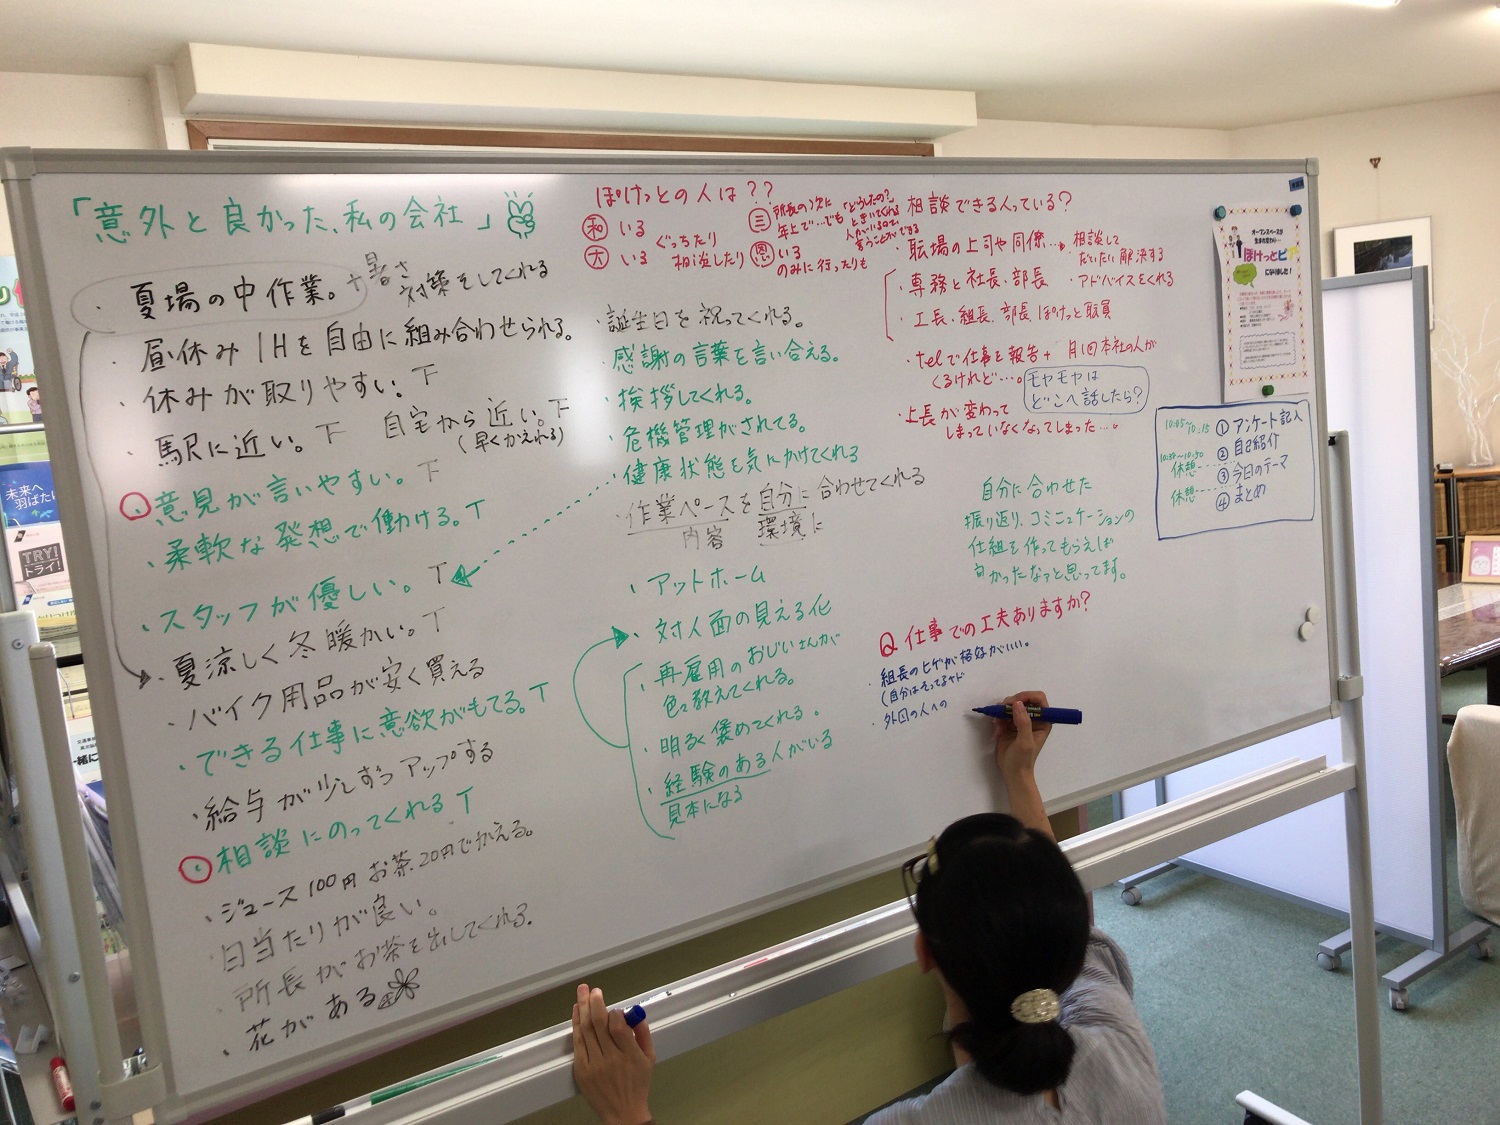 「意外と良かった、私の会社」
・夏場の中作業。+暑さ対策をしてくれる
・昼休み1Hを自由に組み合わせられる。
・休みが取りやすい。T
・駅に近い。T 自宅から近い。T
(早くかえれる)
・意見が言いやすい。T
・柔軟な発想で働ける。T
・スタッフが優しい。T
・夏涼しく冬暖かい。T
・バイク用品が安く買える
・できる仕事に意欲がもてる。T
・給与が少しずつアップする
・相談にのってくれるT
・ジュース100円お茶20円でかえる。
・日当たりが良い。
・所長がお茶を出してくれる。
・花がある
ぽけっとの人は??
和 いる
ぐっちたり
大 いる 相談したり
三 所長のつぎに
年上で…でも
「どうしたの?」
ときいてくれる
人がいるので
言うことができる
恩 いる
のみに行ったりも
・誕生日を祝ってくれる。
・感謝の言葉を言い合える。
・挨拶してくれる。
・危機管理がされてる。
・健康状態を気にかけてくれる
・作業ペースを自分に合わせてくれる
内容 環境に
・アットホーム
・対人面の見える化
・再雇用のおじいさんが
色々教えてくれる。
・明るく褒めてくれる。
・経験のある人がいる
見本になる
相談できる人っている?
・職場の上司や同僚… 相談して
だいたい解決する
・専務と社長、部長 ・アドバイスをくれる
・工長、組長、部長、ぽけっと職員
・telで仕事を報告+月1回本社の人が
くるけれど…。
モヤモヤは
どこへ話したら?
・上長が変わって
しまっていなくなってしまった…。
自分に合わせた
振り返り、コミュニケーションの
仕組を作ってもらえば
良かったなァと思ってます。
Q 仕事での工夫ありますか?
・組長のヒゲが格好がいい。
(自分はそってるケド
・外国の人への
オープンスペースが
生まれ変わり…
ぽけっとピア
になりました!
10:05~10:15 ①アンケート記入
②自己紹介
休憩 ③今日のテーマ
休憩 ④まとめ
未来へ
羽ばたけ
TRY!
トライ!